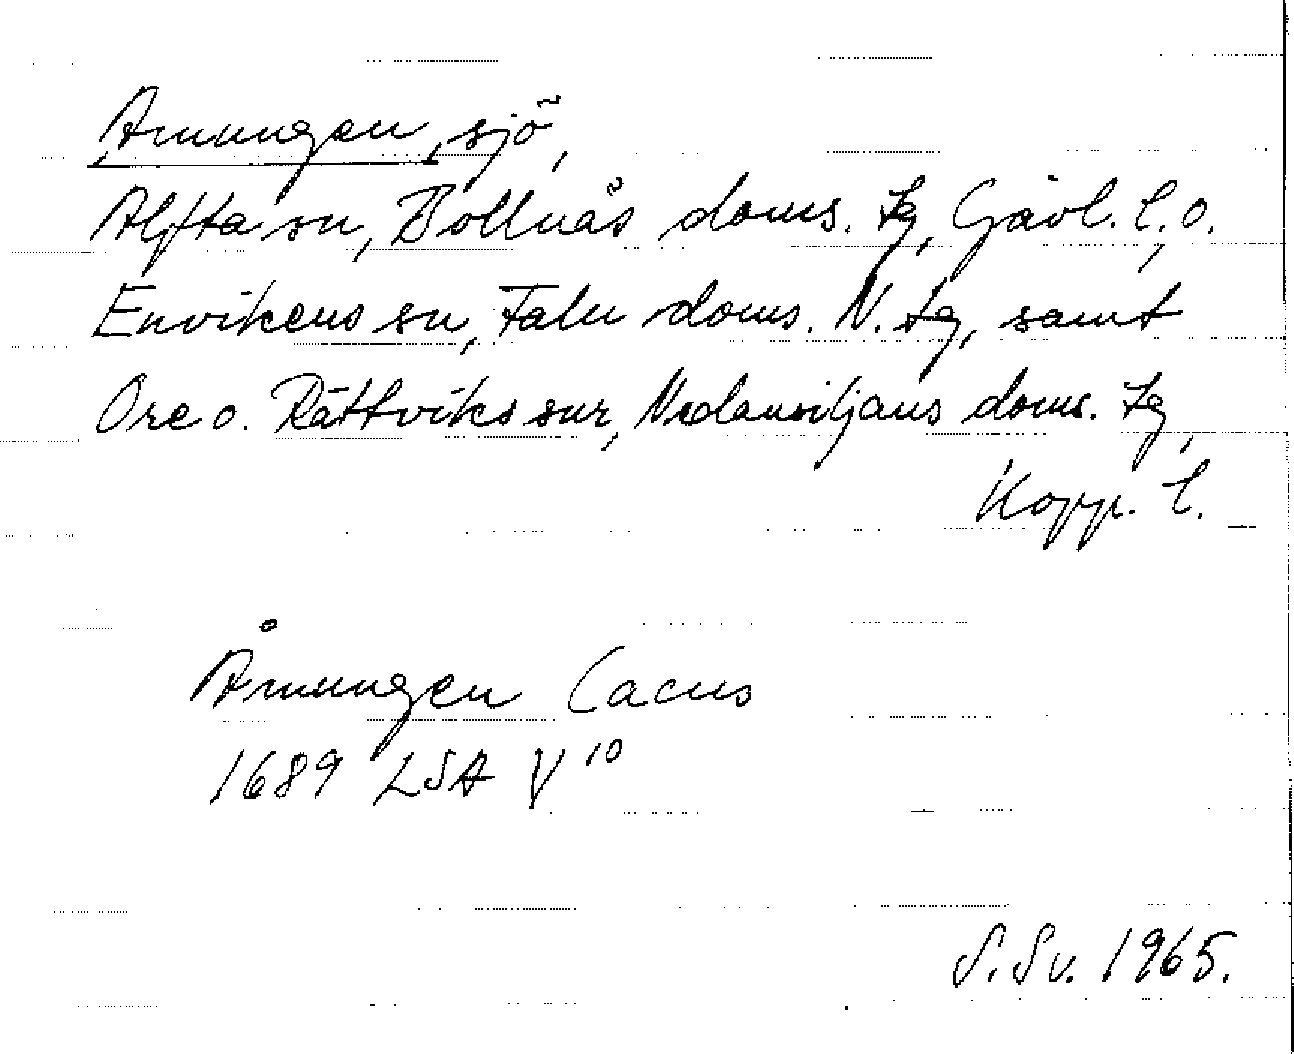 Amungen, sjö,
Alfta sn, Bollnäs doms. tg, Gävl. l, o.
Envikens sn, Falu doms. N. tg, samt
Ore o. Rättviks snr, Nedansiljans doms. tg,
Kopp. l.
Åmungen Lacus
1689 LSA V 10
S. Sv. 1965.